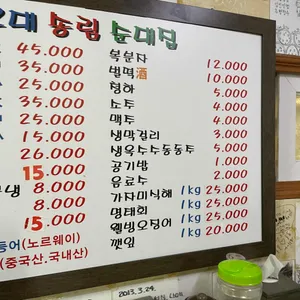 오대 송림 순대집
45.000
35.000
25.000
25.000
15.000
26.000
15.000
냉 8.000
8.000
15.000
등어(노르웨이)
(중국산.국내산)
복분자 12.000
별떡酒 10.000
청하 5.000
소주 4.000
맥주 4.000
생막걸리 3.000
생옥수수동동주 5.000
공기밥 1.000
음료수 2.000
가자미식해 1kg 25.000
명태회 1kg 25.000
웰빙오징어 1kg 25.000
깻잎 1kg 20.000
2013.3.24.